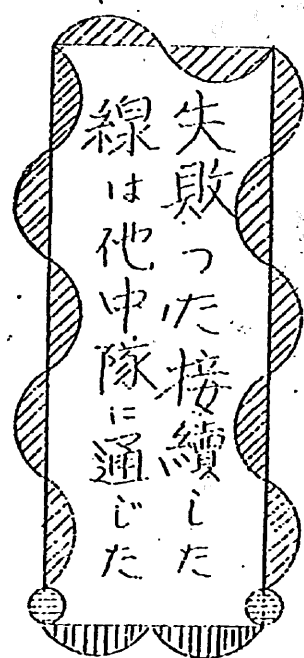 失敗った接續した
線は他中隊に通じた